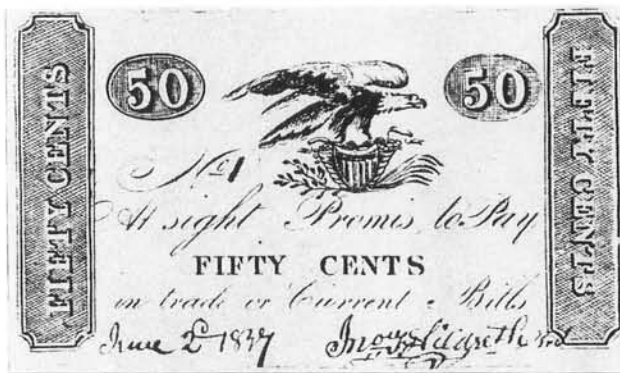 FIFTY CENTS
50
50
FIFTY CENTS
No 1
At sight Promis to Pay
FIFTY CENTS
in trade or Current Bills
June 2d 1837